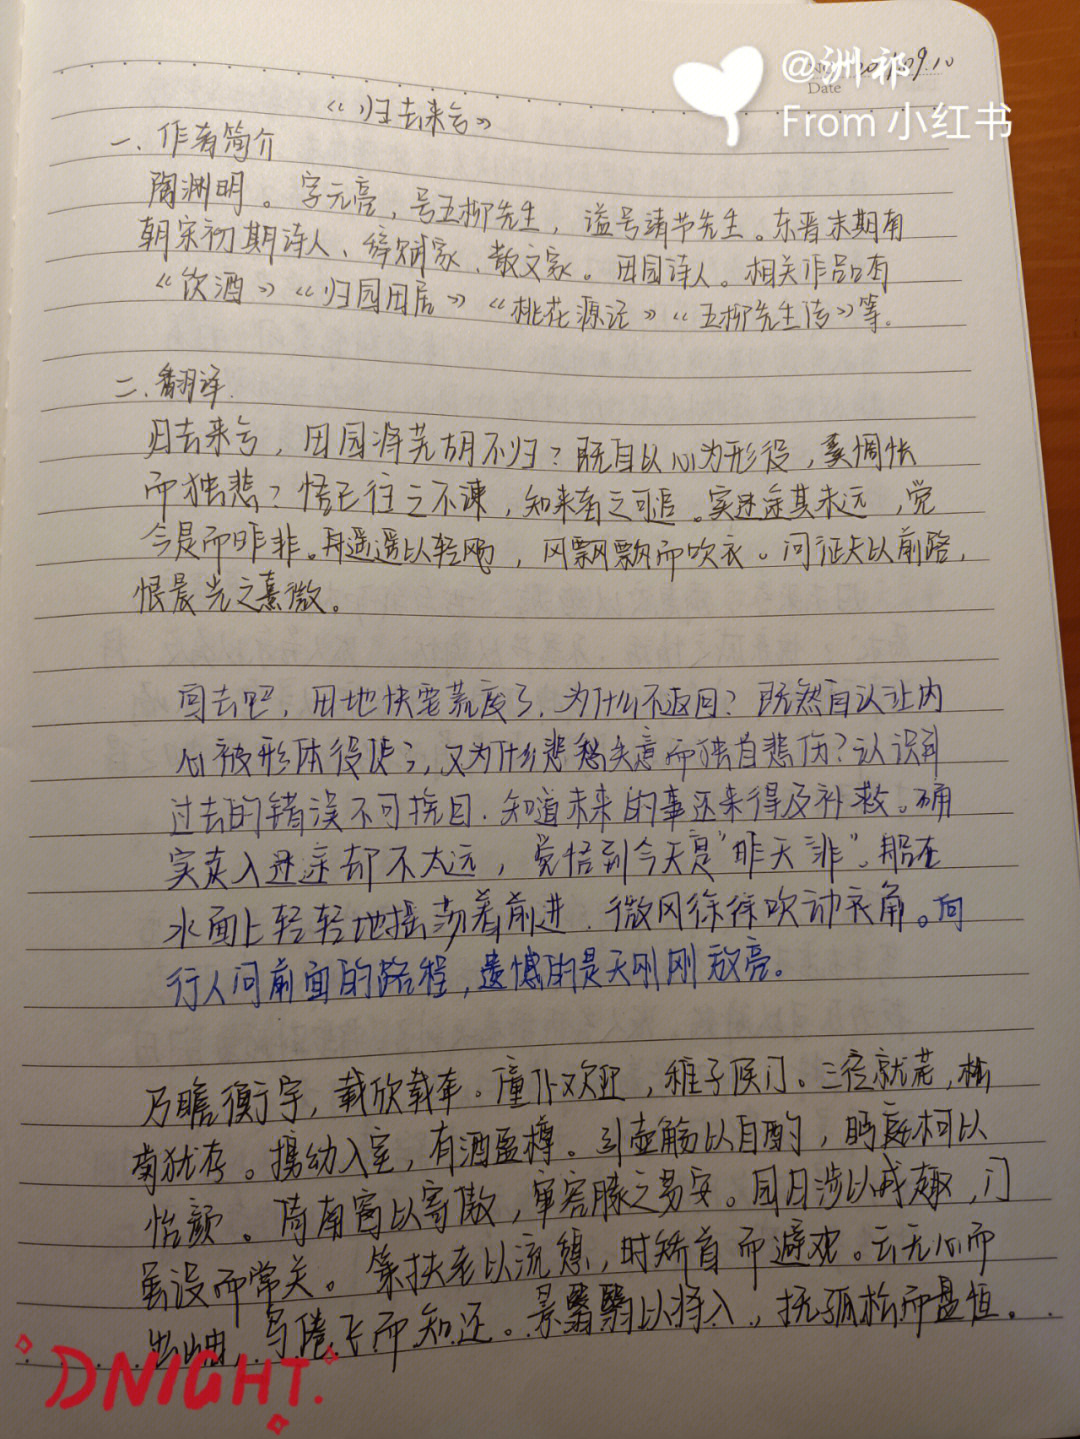 @洲祁
From 小红书
Date
09.10
《归去来兮》
一、作者简介
陶渊明。字元亮，号五柳先生，谥号靖节先生。东晋末期南
朝宋初期诗人、辞赋家、散文家。田园诗人。相关作品有
《饮酒》《归园田居》《桃花源记》《五柳先生传》等.
二.翻译.
归去来兮，田园将芜胡不归？既自以心为形役，奚惆怅
而独悲？悟已往之不谏，知来者之可追。实迷途其未远，觉
今是而昨非。舟遥遥以轻飏，风飘飘而吹衣。问征夫以前路，
恨晨光之熹微。
回去吧，田地快要荒废了，为什么不返回？既然自认让内
心被形体役使了，又为什么悲愁失意而独自悲伤？认识到
过去的错误不可挽回.知道未来的事还来得及补救。确
实走入迷途却不太远，觉悟到今天是"昨天非"。船在
水面上轻轻地摇荡着前进.微风徐徐吹动衣角。向
行人问前面的路程，遗憾的是天刚刚放亮。
乃瞻衡宇，载欣载奔。僮仆欢迎，稚子候门。三径就荒，松
菊犹存。携幼入室，有酒盈樽。引壶觞以自酌，眄庭柯以
怡颜。倚南窗以寄傲，审容膝之易安。园日涉以成趣，门
虽设而常关。策扶老以流憩，时矫首而遐观。云无心而
出岫，鸟倦飞而知还。景翳翳以将入，抚孤松而盘恒。
DNIGHT.